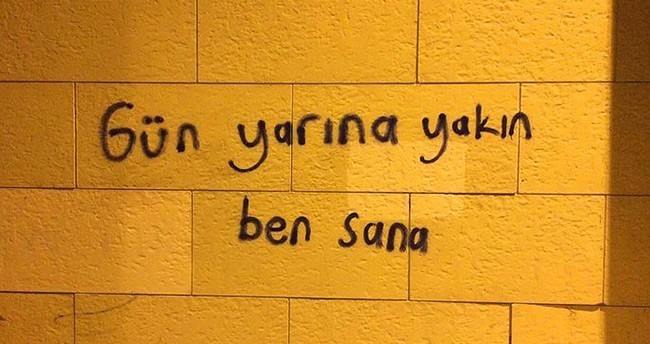 Gün yarına yakın
ben sana